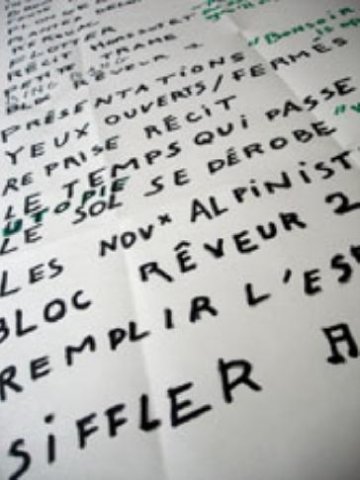 RÉCIT
TRAME
RÊVEUR
PRÉSENTATIONS "BONSOIR
YEUX OUVERTS/FERMÉS
REPRISE RÉCIT
LE TEMPS QUI PASSE
UTOPIE
LE SOL SE DÉROBE
LES NOVX ALPINIST
BLOC RÊVEUR 2
REMPLIR L'ESP
SIFFLER A